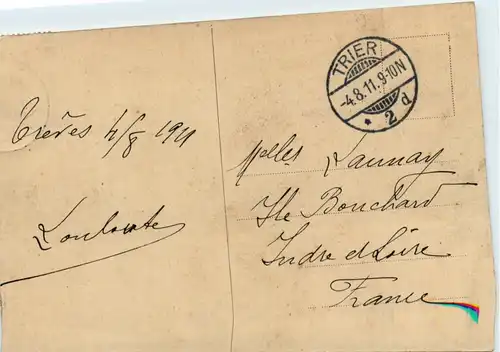 TRIER
-4.8.11.9-10N
* 2d
Trèves 4/8 1911
Mlles Launay
Ile Bouchard
Indre et Loire
France